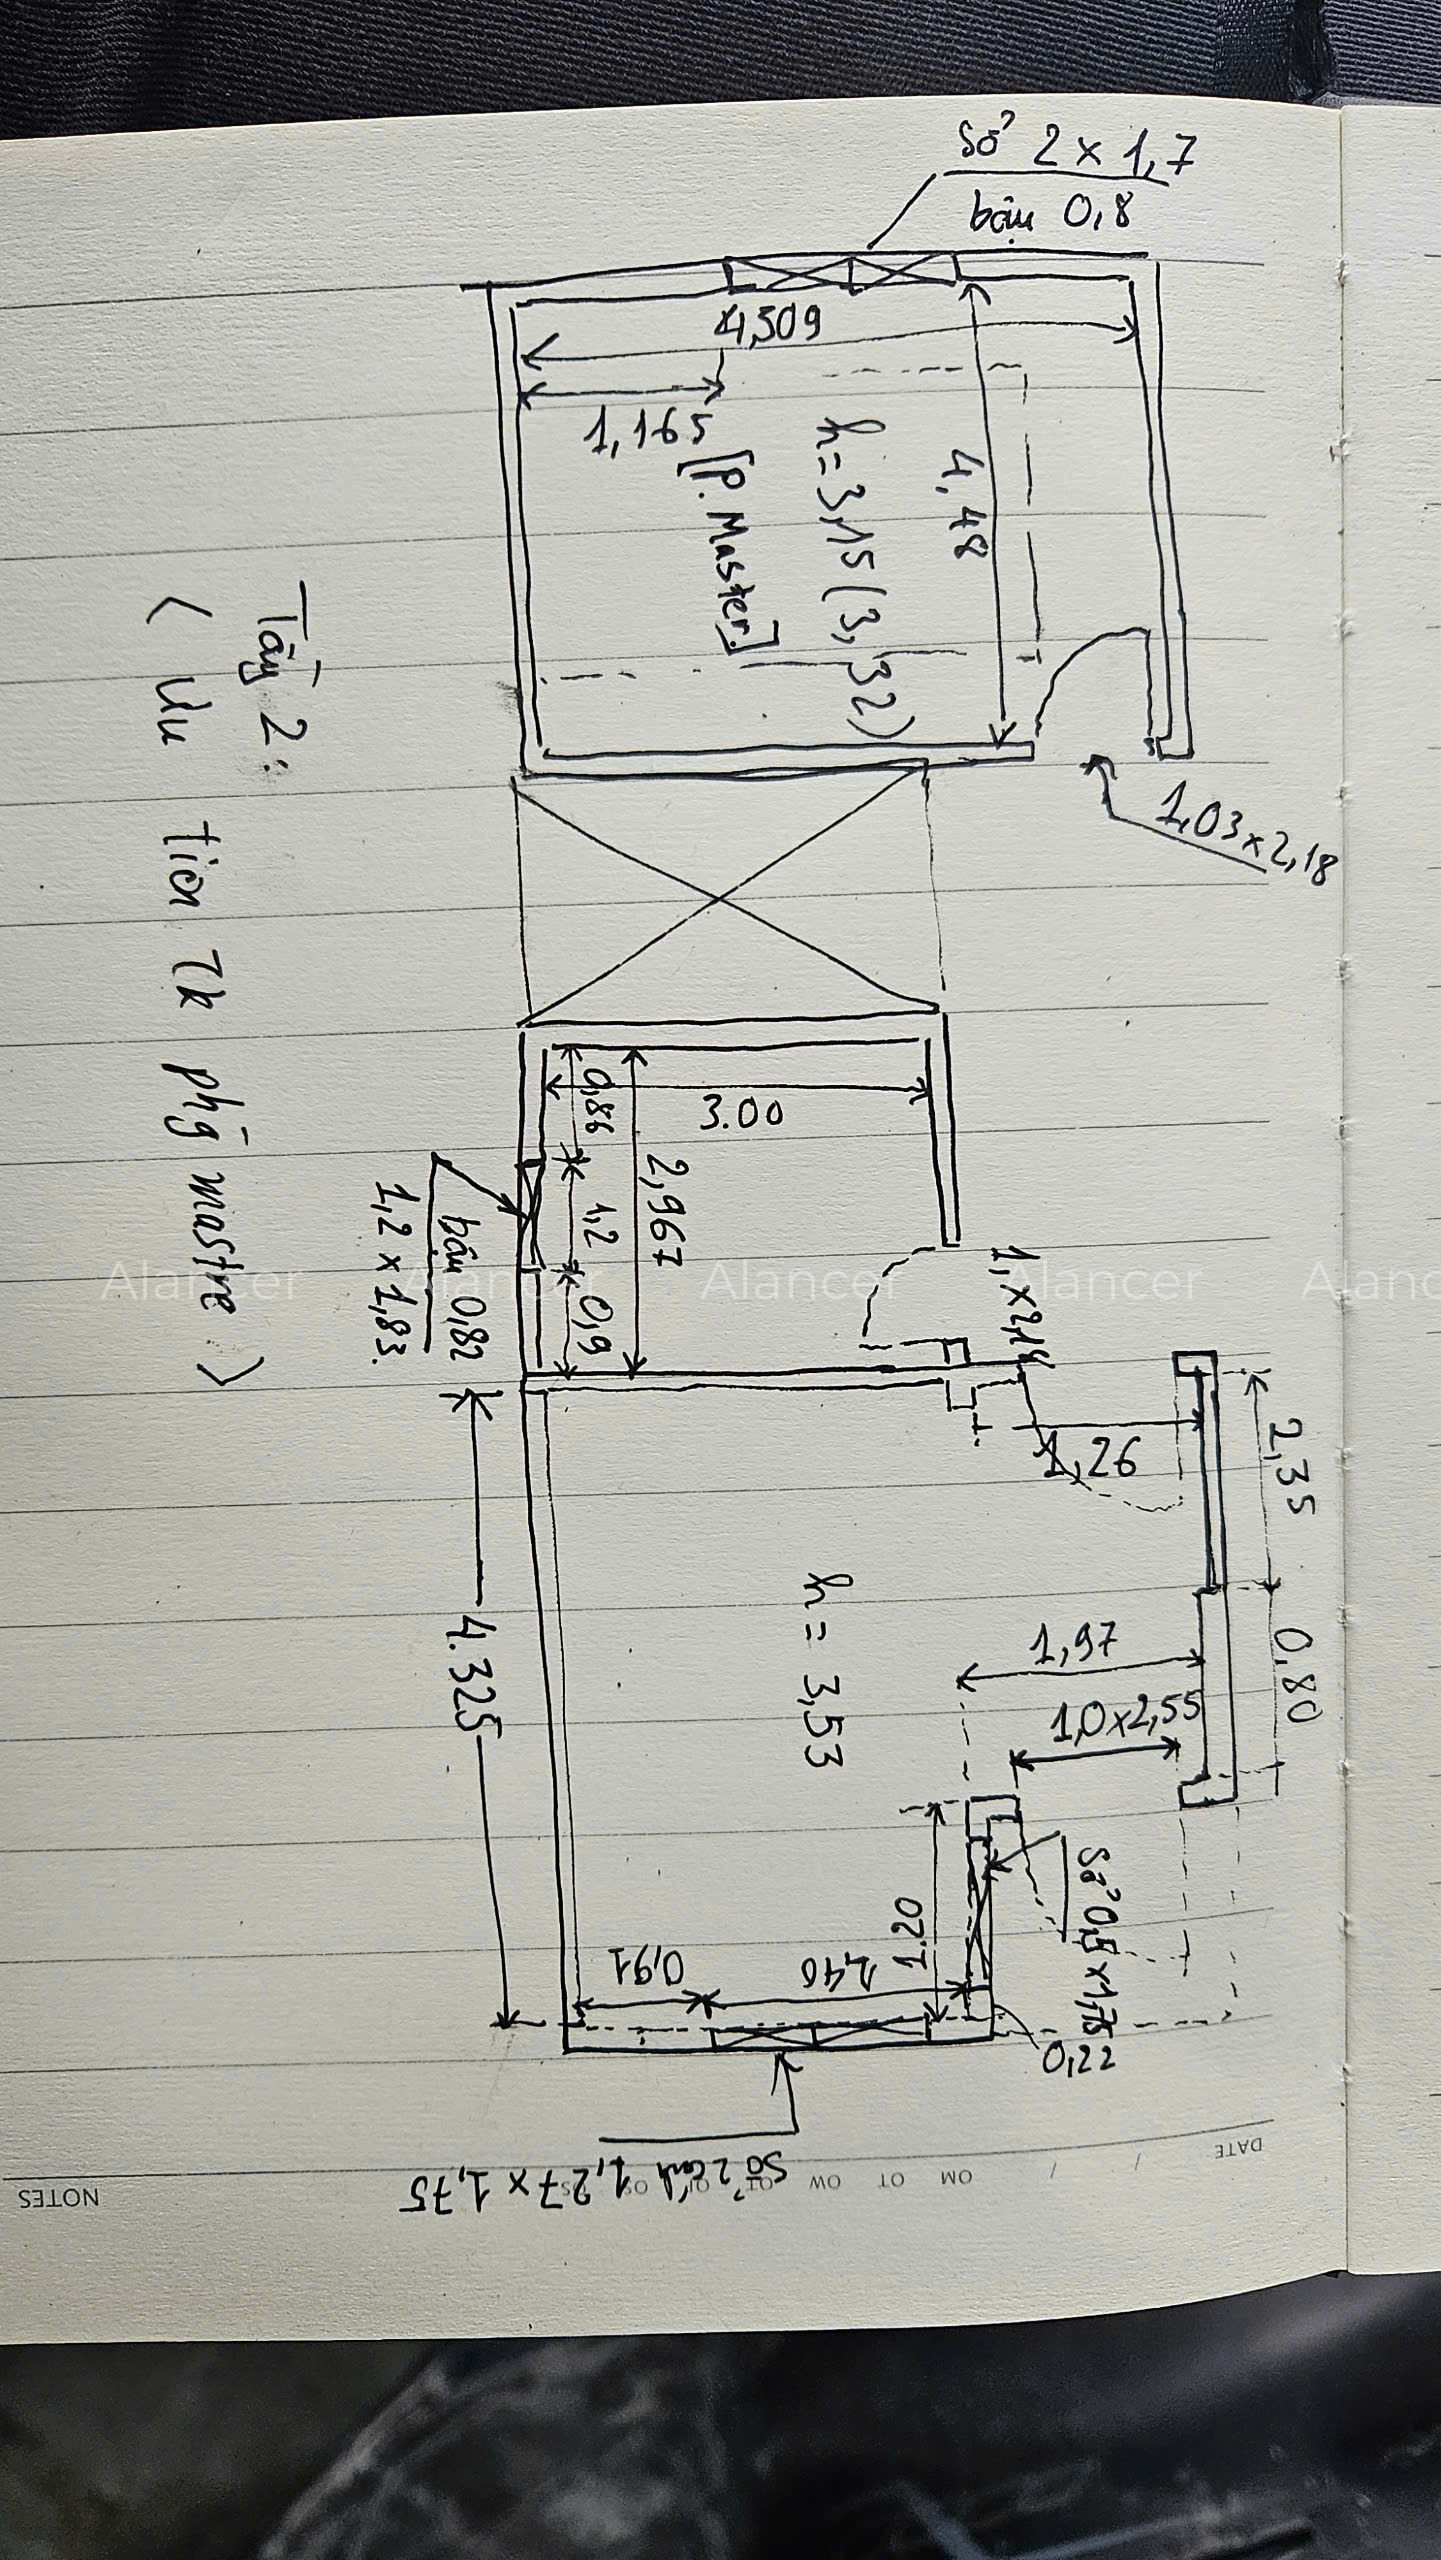 Sổ 2 x 1,7
bậu 0,8
4,509
1,165
4,48
h = 3,15 (3,32)
[P. Master]
1,03 x 2,18
Tầng 2:
< Ưu tiên TK phg mastre >
3.00
0,86
2,967
1,2
0,9
bậu 0,82
1,2 x 1,83.
2,35
1,26
4.325
h = 3,53
1,97
0,80
1,0 x 2,55
1.20
0,91
0,22
Sổ 2 cánh 1,27 x 1,75
DATE / /
NOTES
Alancer Alancer Alancer Alancer